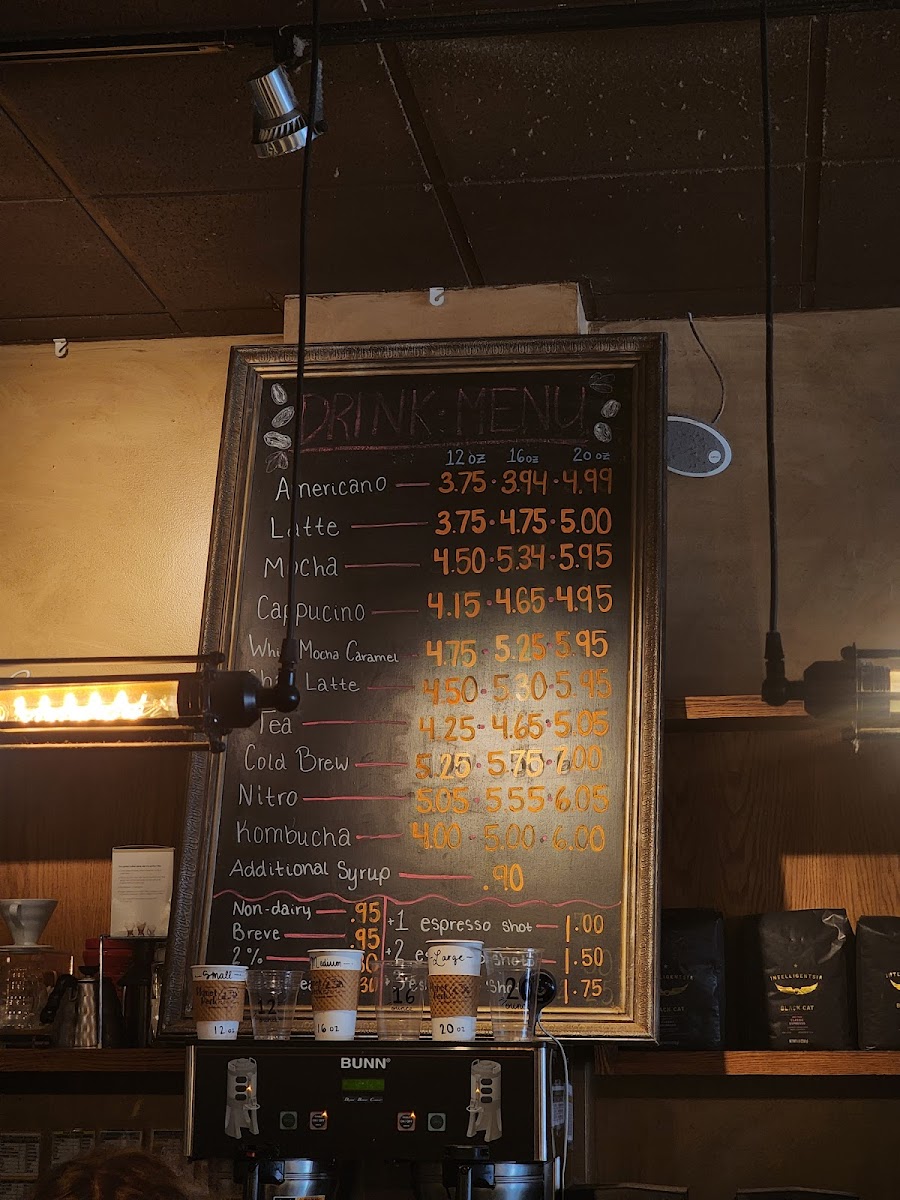 DRINK MENU
12 oz 16 oz 20 oz
Americano 3.75 · 3.94 · 4.99
Latte 3.75 · 4.75 · 5.00
Mocha 4.50 · 5.34 · 5.95
Cappucino 4.15 · 4.65 · 4.95
Mocha Caramel 4.75 · 5.25 · 5.95
Latte 4.50 · 5.30 · 5.95
Tea 4.25 · 4.65 · 5.05
Cold Brew 5.25 · 5.75 · 7.00
Nitro 5.05 · 5.55 · 6.05
Kombucha 4.00 · 5.00 · 6.00
Additional Syrup .90
Non-dairy .95
Breve .95
2%
+1 espresso shot 1.00
+2 1.50
1.75
Small
12 oz
12
16 oz
16
Large
20 oz
BUNN®
INTELLIGENTSIA
BLACK CAT